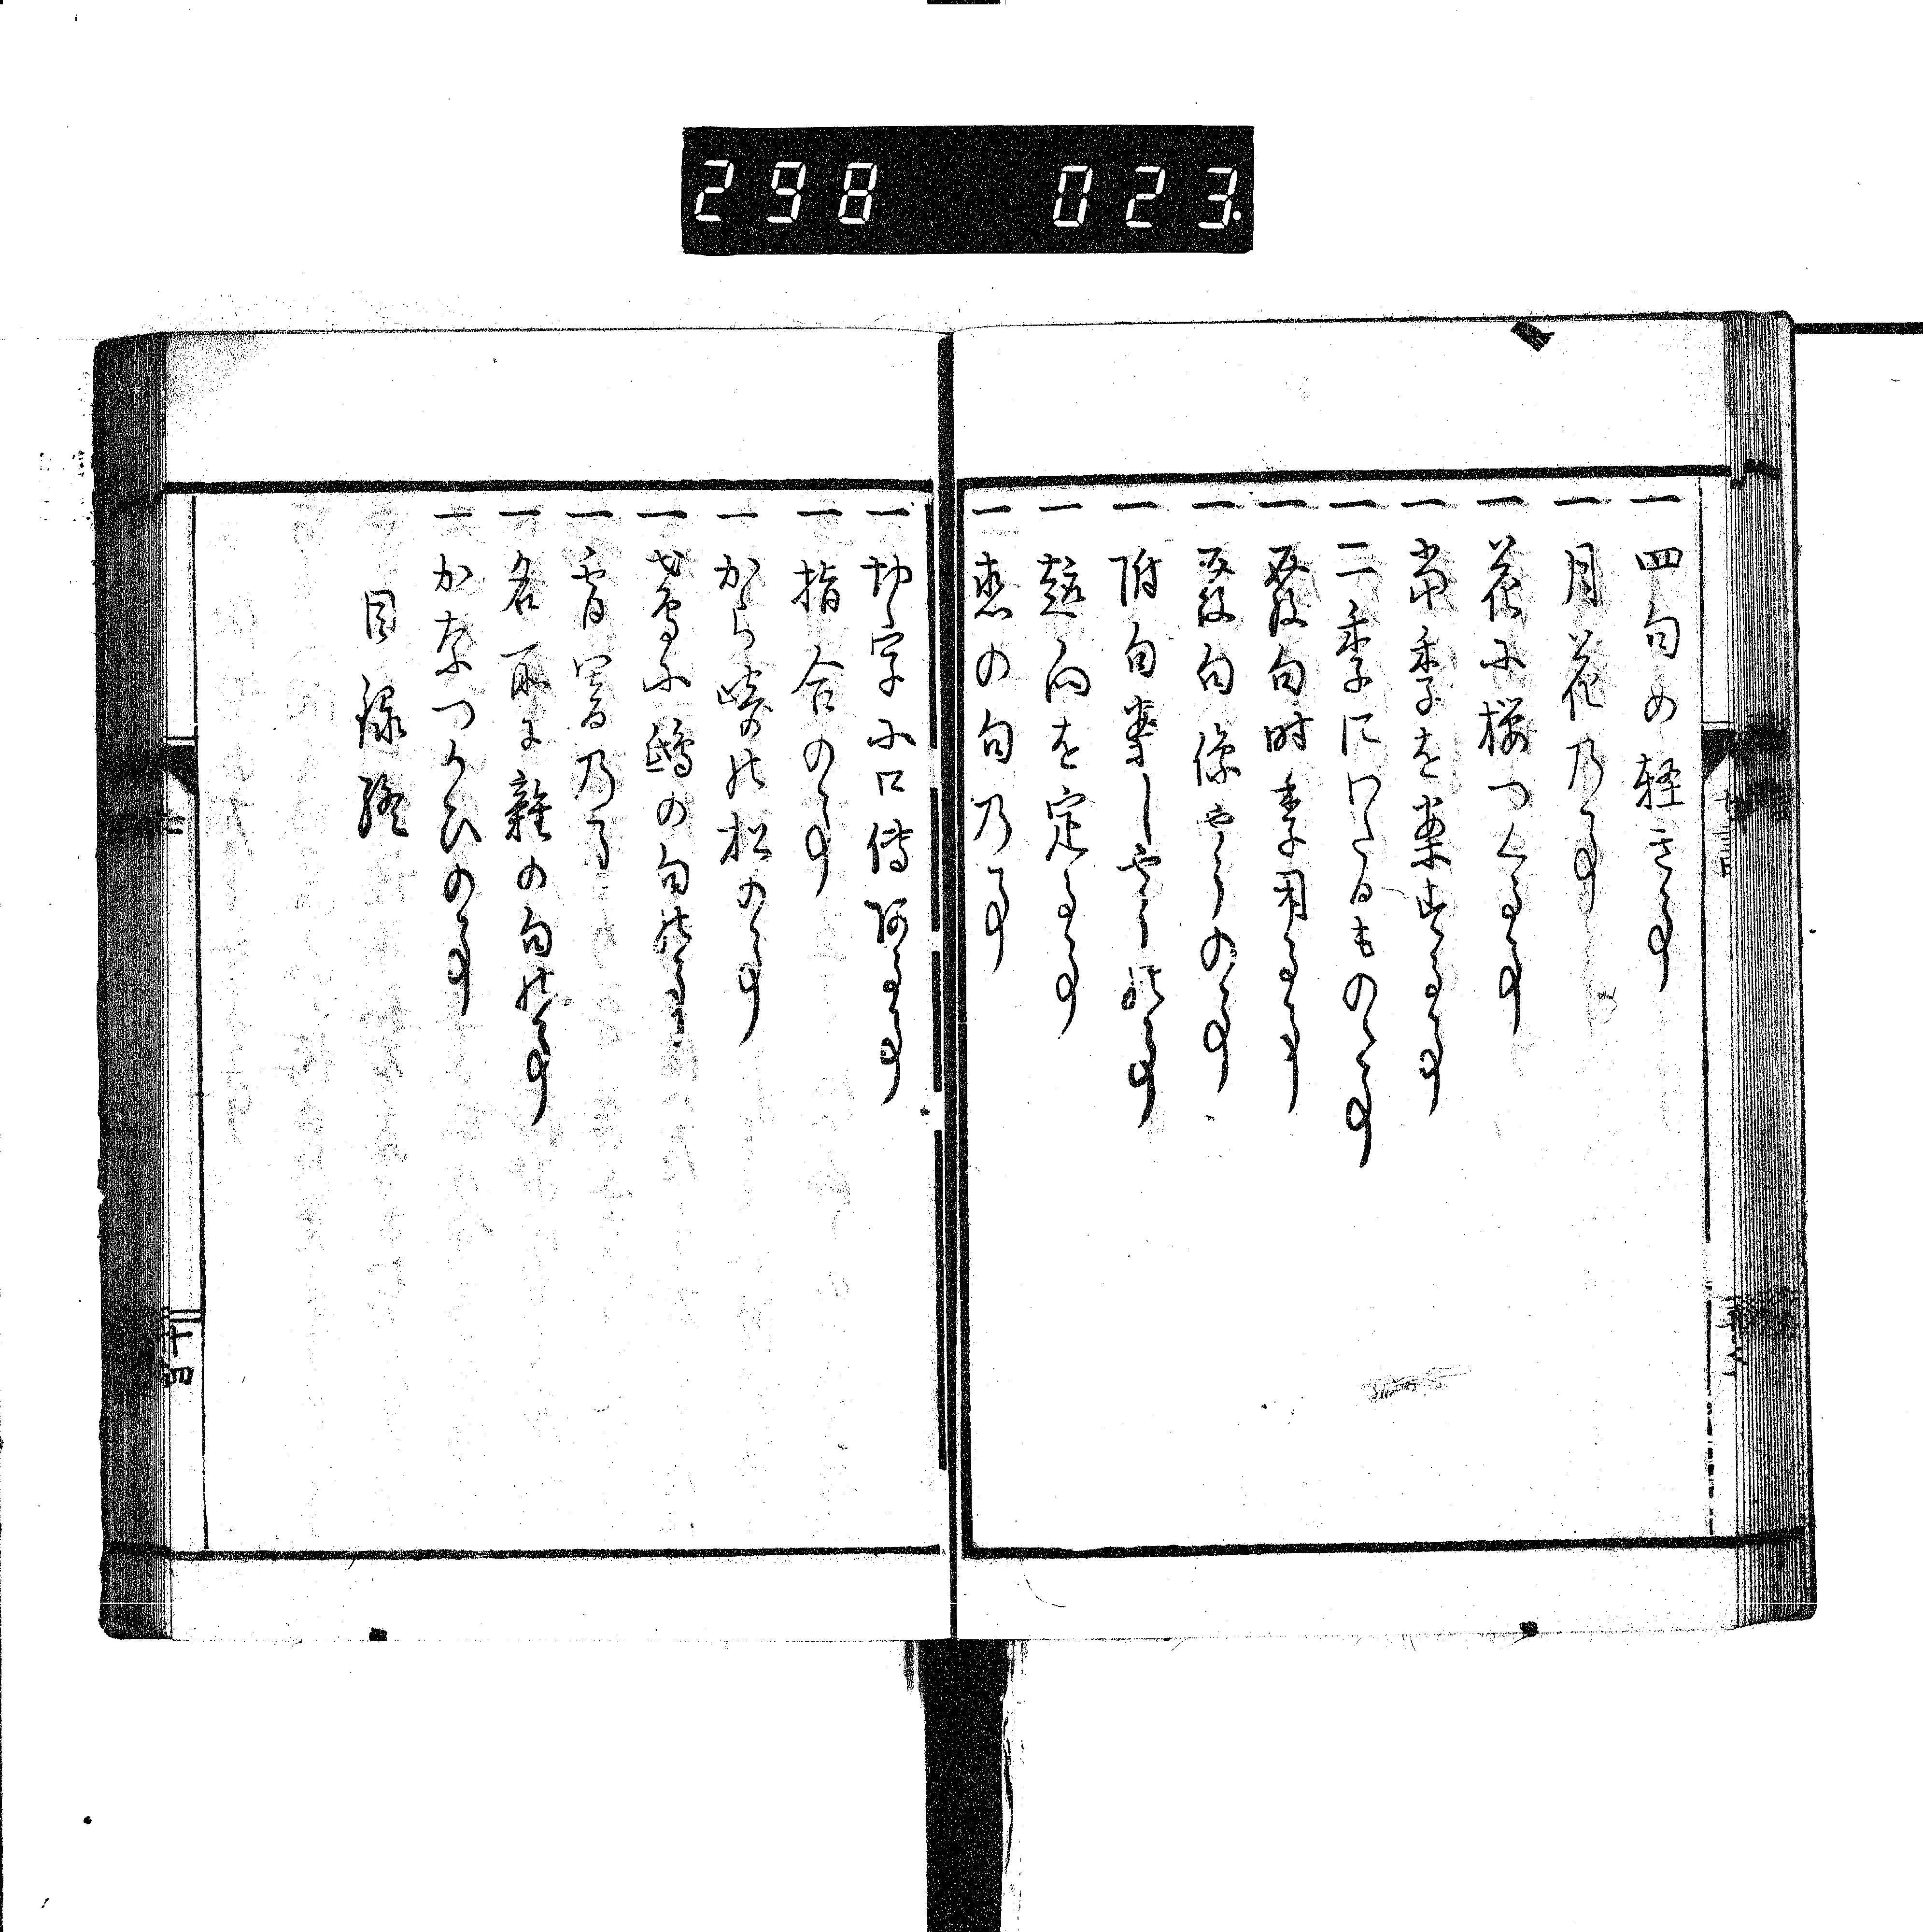 298 023
一 四句め軽き事
一 月花乃事
一 花に桜つくる事
一 当季を案しる事
一 二季にわたるものゝ事
一 発句時季用る事
一 発句像やうの事
一 附句案しやうの事
一 趣向を定る事
一 恋の句乃事
一 切字に口傳ある事
一 指合の事
一 から崎の松の事
一 鳶に鳶の句の事
一 宵闇乃事
一 名所に雑の句の事
一 かなつかひの事
目録終